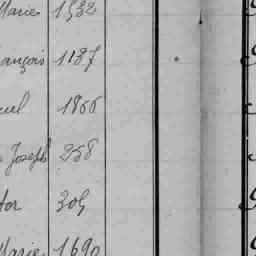 Maries 1532
ançois 1187
uel 1866
Joseph 258
tor 305
Maries 1690